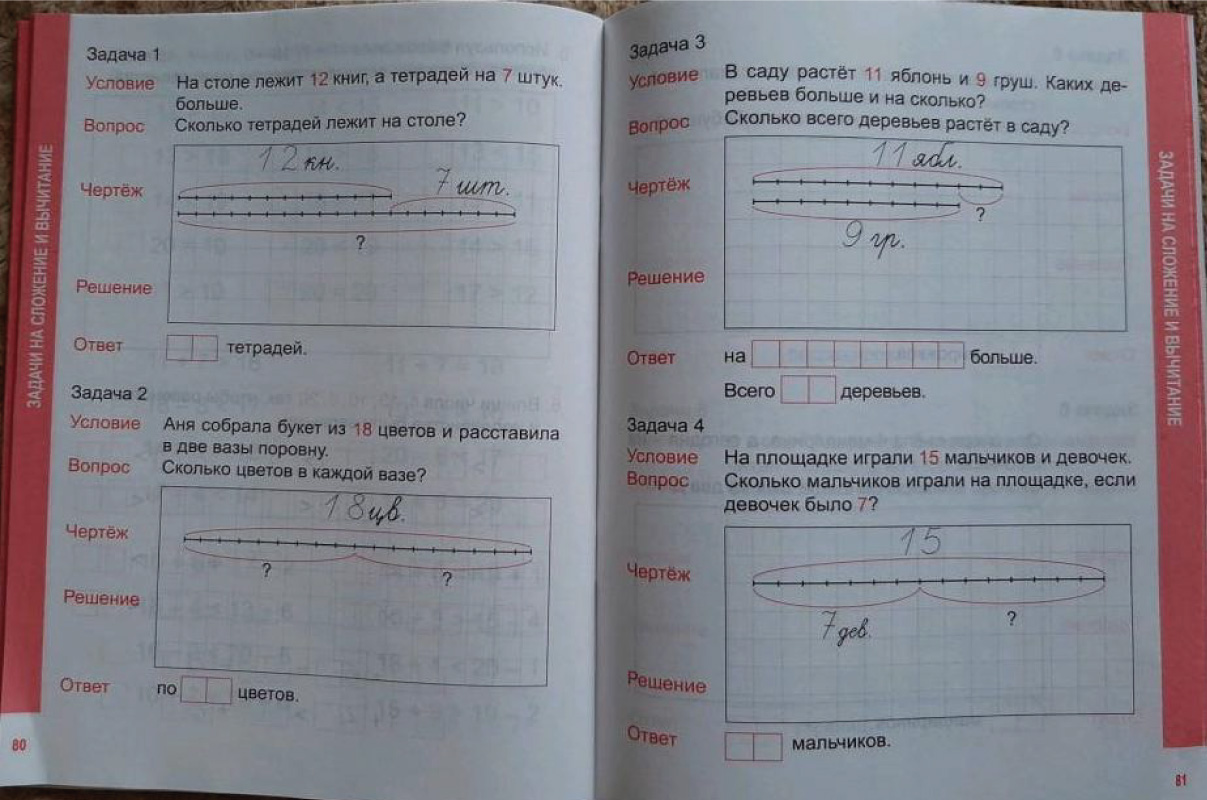 ЗАДАЧИ НА СЛОЖЕНИЕ И ВЫЧИТАНИЕ
Задача 1
Условие На столе лежит 12 книг, а тетрадей на 7 штук.
больше.
Вопрос Сколько тетрадей лежит на столе?
12 кн.
7 шт.
Чертёж
?
Решение
Ответ тетрадей.
Задача 2
Условие Аня собрала букет из 18 цветов и расставила
в две вазы поровну.
Вопрос Сколько цветов в каждой вазе?
18 цв.
Чертёж
? ?
Решение
Ответ по цветов.
80
Задача 3
Условие В саду растёт 11 яблонь и 9 груш. Каких де-
ревьев больше и на сколько?
Вопрос Сколько всего деревьев растёт в саду?
11 ябл.
Чертёж
?
9 гр.
Решение
Ответ на больше.
Всего деревьев.
Задача 4
Условие На площадке играли 15 мальчиков и девочек.
Вопрос Сколько мальчиков играли на площадке, если
девочек было 7?
15
Чертёж
7 дев. ?
Решение
Ответ мальчиков.
ЗАДАЧИ НА СЛОЖЕНИЕ И ВЫЧИТАНИЕ
81